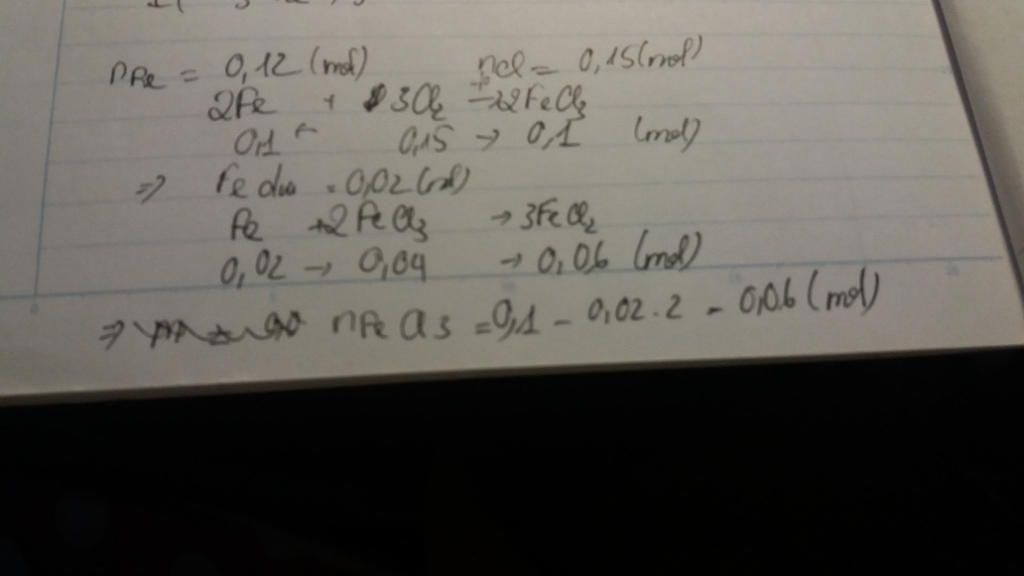 nFe = 0,12 (mol) nCl = 0,15 (mol)
2Fe + 3Cl2 → 2FeCl3
0,1 ← 0,15 → 0,1 (mol)
=> Fe dư = 0,02 (mol)
Fe + 2FeCl3 → 3FeCl2
0,02 → 0,04 → 0,06 (mol)
=> nFeCl3 = 0,1 - 0,02.2 = 0,06 (mol)